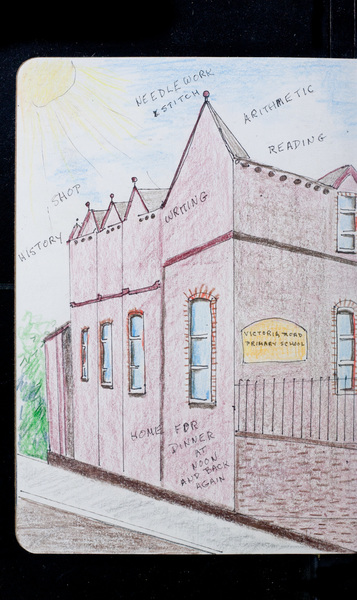 NEEDLEWORK
& STITCH
ARITHMETIC
READING
SHOP
WRITING
HISTORY
VICTORIA ROAD
PRIMARY SCHOOL
HOME FOR
DINNER
AT
NOON
AND BACK
AGAIN